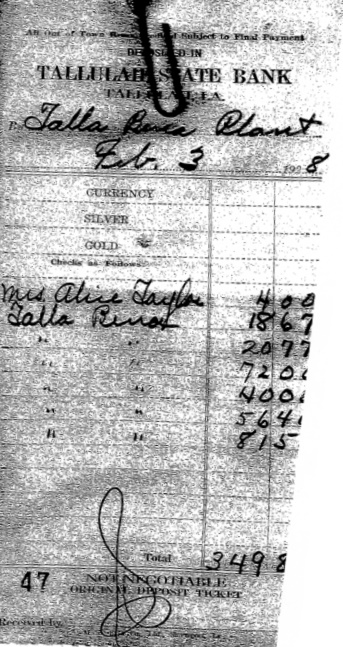 An Out of Town Subject to Final Payment
DEPOSITED IN
TALLULAH STATE BANK
TALLULAH, LA.
Talla Plant
Feb. 3 1928
CURRENCY
SILVER
GOLD
Checks as Follows:
Mrs. Alice Taylor 4 00
Talla Bena 18 67
" " 20 77
" " 7 20
" " 4 00
" " 5 64
" " 8 15
Total 349 8
47 NOT NEGOTIABLE
ORIGINAL DEPOSIT TICKET
Received by